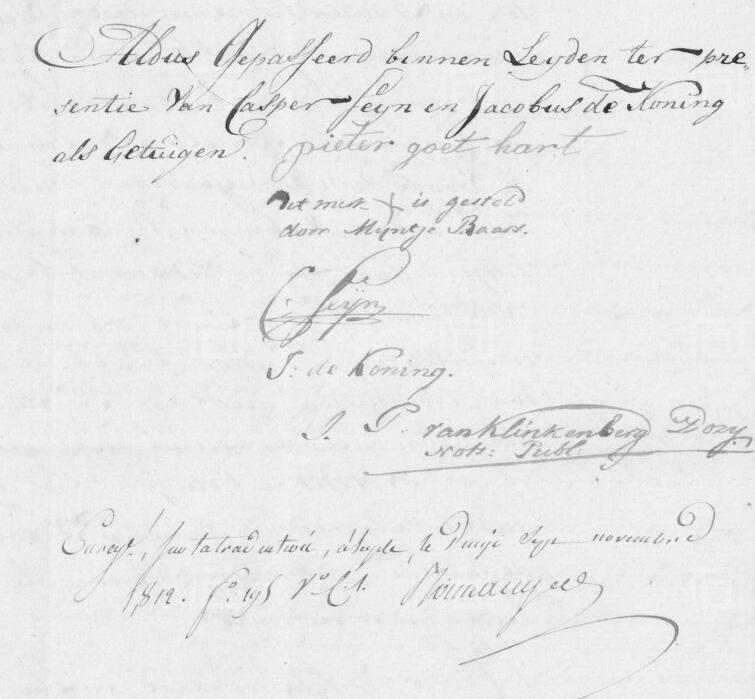 Aldus Gepasseerd binnen Leyden ter pre„
sentie Van Casper Seyn en Jacobus de Koning
als Getuigen. pieter goet hart
Dit merk X is gesteld
door Mijntje Baars.
C: Seijn
J: de Koning.
J. P. van Klinkenberg Dozy
Not: Publ:
novembre
1812. fo. 195 Vo. C. 1.